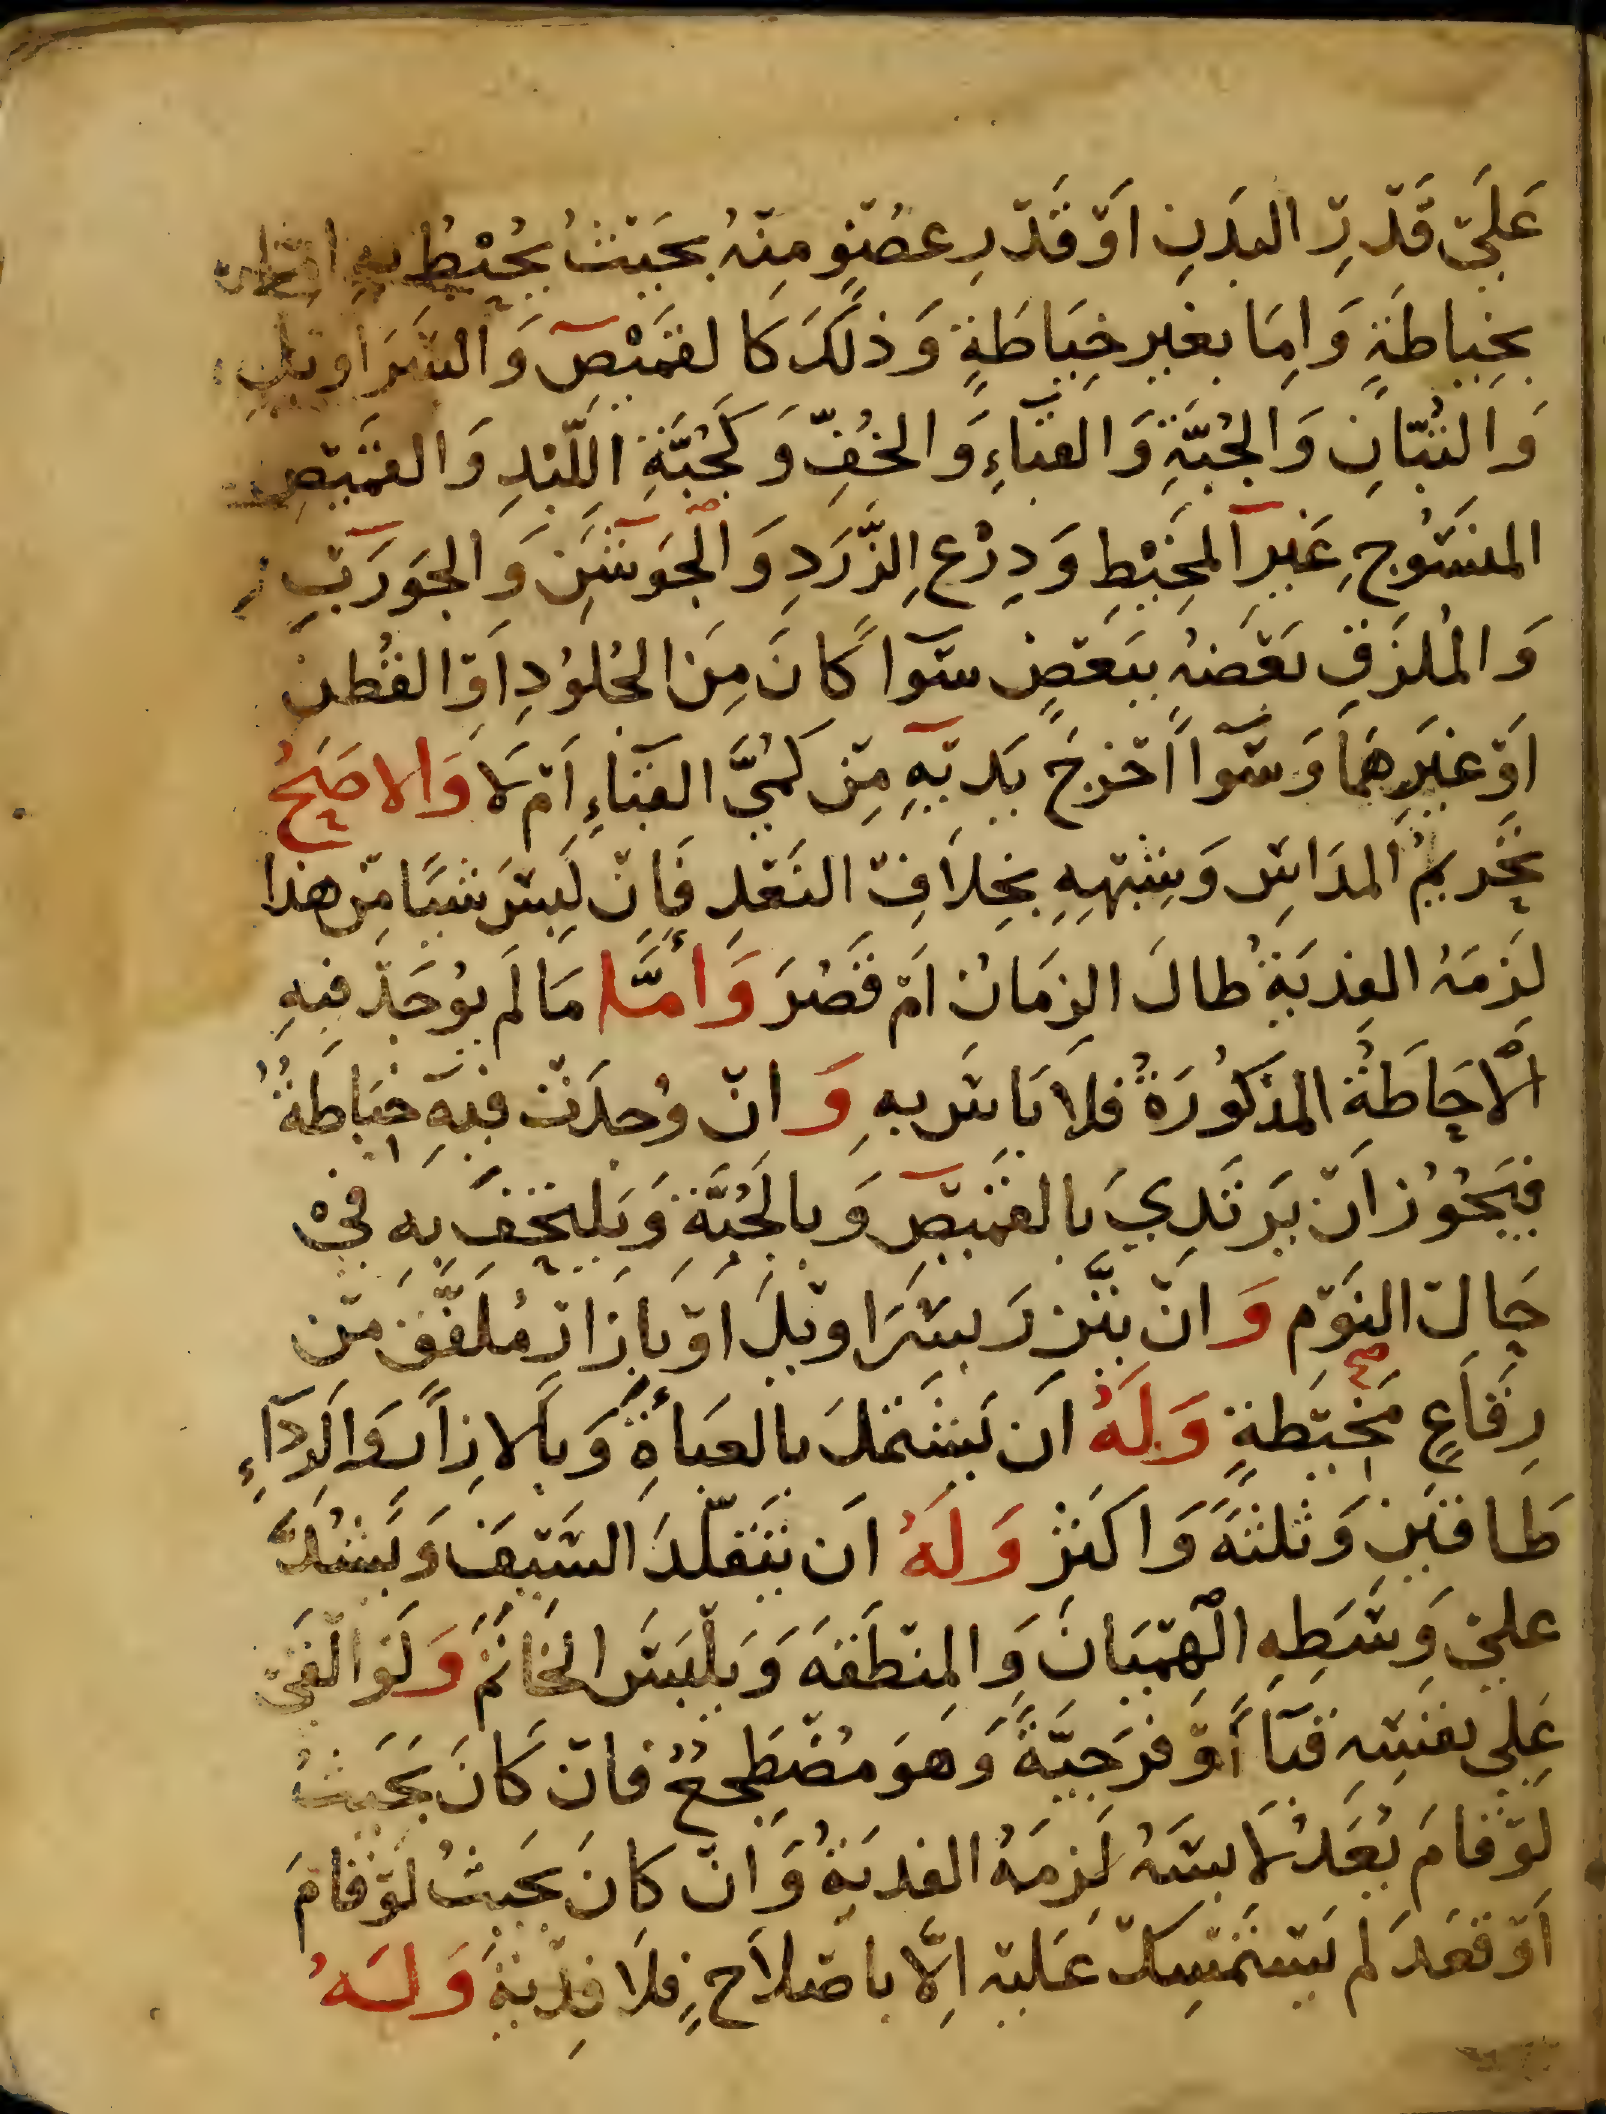 عَلَى قَدْرِ البَدَنِ اَوْ قَدْرِ عضْوٍ مِنْهُ بحَيْثُ يُحِيْطُ بهِ اِمَّا
بخِياطَةٍ وَاِمَا بغير خِيَاطَةٍ وَذلكَ كَالقَمِيْصِ وَالسَّرَاويلِ
وَالتُّبّانِ وَالجُبَّةِ وَالقبَاءِ وَالخُفِّ وَكَجُبَّةِ اللّبْدِ وَالقميْصِ
المنسُوجِ غَيرَ المَخِيْطِ وَدِرْعِ الزَّرَدِ وَالْجَوْشَنِ وَالجَوْرَبِ
وَالمُلزَقِ بَعْضَهُ ببَعْضٍ سَوَا كَانَ مِنَ الجُلوُدِ اَوْ القُطْن
اَوْ غيَرِهمَا وَسَوَا اَخْرَجَ يَدَيْهِ مِنْ كُمَّيِ القبَاءِ اَمْ لَا وَالاصَحُّ
تحَريمُ المدَاسِ وَشِبْهِهِ بخِلاَفِ النَعْلِ فَاِنْ لَبِسَ شيًا مِنْ هذا
لزَمَهُ الفديَةُ طالَ الزمَانُ اَمْ قَصُرَ وَأمَّا مَا لَم يوُجَدْ فيهِ
الْاِحَاطَةُ المذكُورَةُ فلا بَاسَ بهِ وَانْ وُجدَتْ فيْهِ خِيَاطَةٌ
فيَجُوُزُ اَنْ يَرْتَدِيَ بالقَمِيْصِ وَبالجُبَّةِ وَيلتحِفَ بهِ فِيْ
حَالِ النوَْمِ وَانْ يتَّزرَ بسَرَاوِيْلَ اوْ باِزَارٍ مُلفَّقٍ منْ
رِقَاعٍ مَخِيْطةٍ وَلَهُ اَن يَشتَملَ بالعبَاءَةِ وَبالاِزارِ وَالردَآءِ
طَاقَيَنِ وَثلثةً وَاكثرَ وَلَهُ اَن يَتَقلّدَ السَّيْفَ وَيَشُدَّ
علىْ وَسَطِهِ الْهِمْيَانَ وَالمِنْطَقةَ وَيَلْبَسَ الخَاتمَ وَلوَ القَىْ
عَلِى نفسِْهِ قبَاً اَوْ فَرَجيَّةً وَهوَ مُضْطَجِعٌ فانْ كَانَ بحَيَثُ
لوَْ قامَ يُعَدُّ لَابسَهُ لزمَهُ الفديَةُ وَانْ كانَ بحَيثُ لوْ قامَ
اَوْ قعَدَ لم يَسْتمَسِكْ عَليْهِ اِلَّا باصْلاَحٍ فلَا فِدْيَةَ وَلَهُ